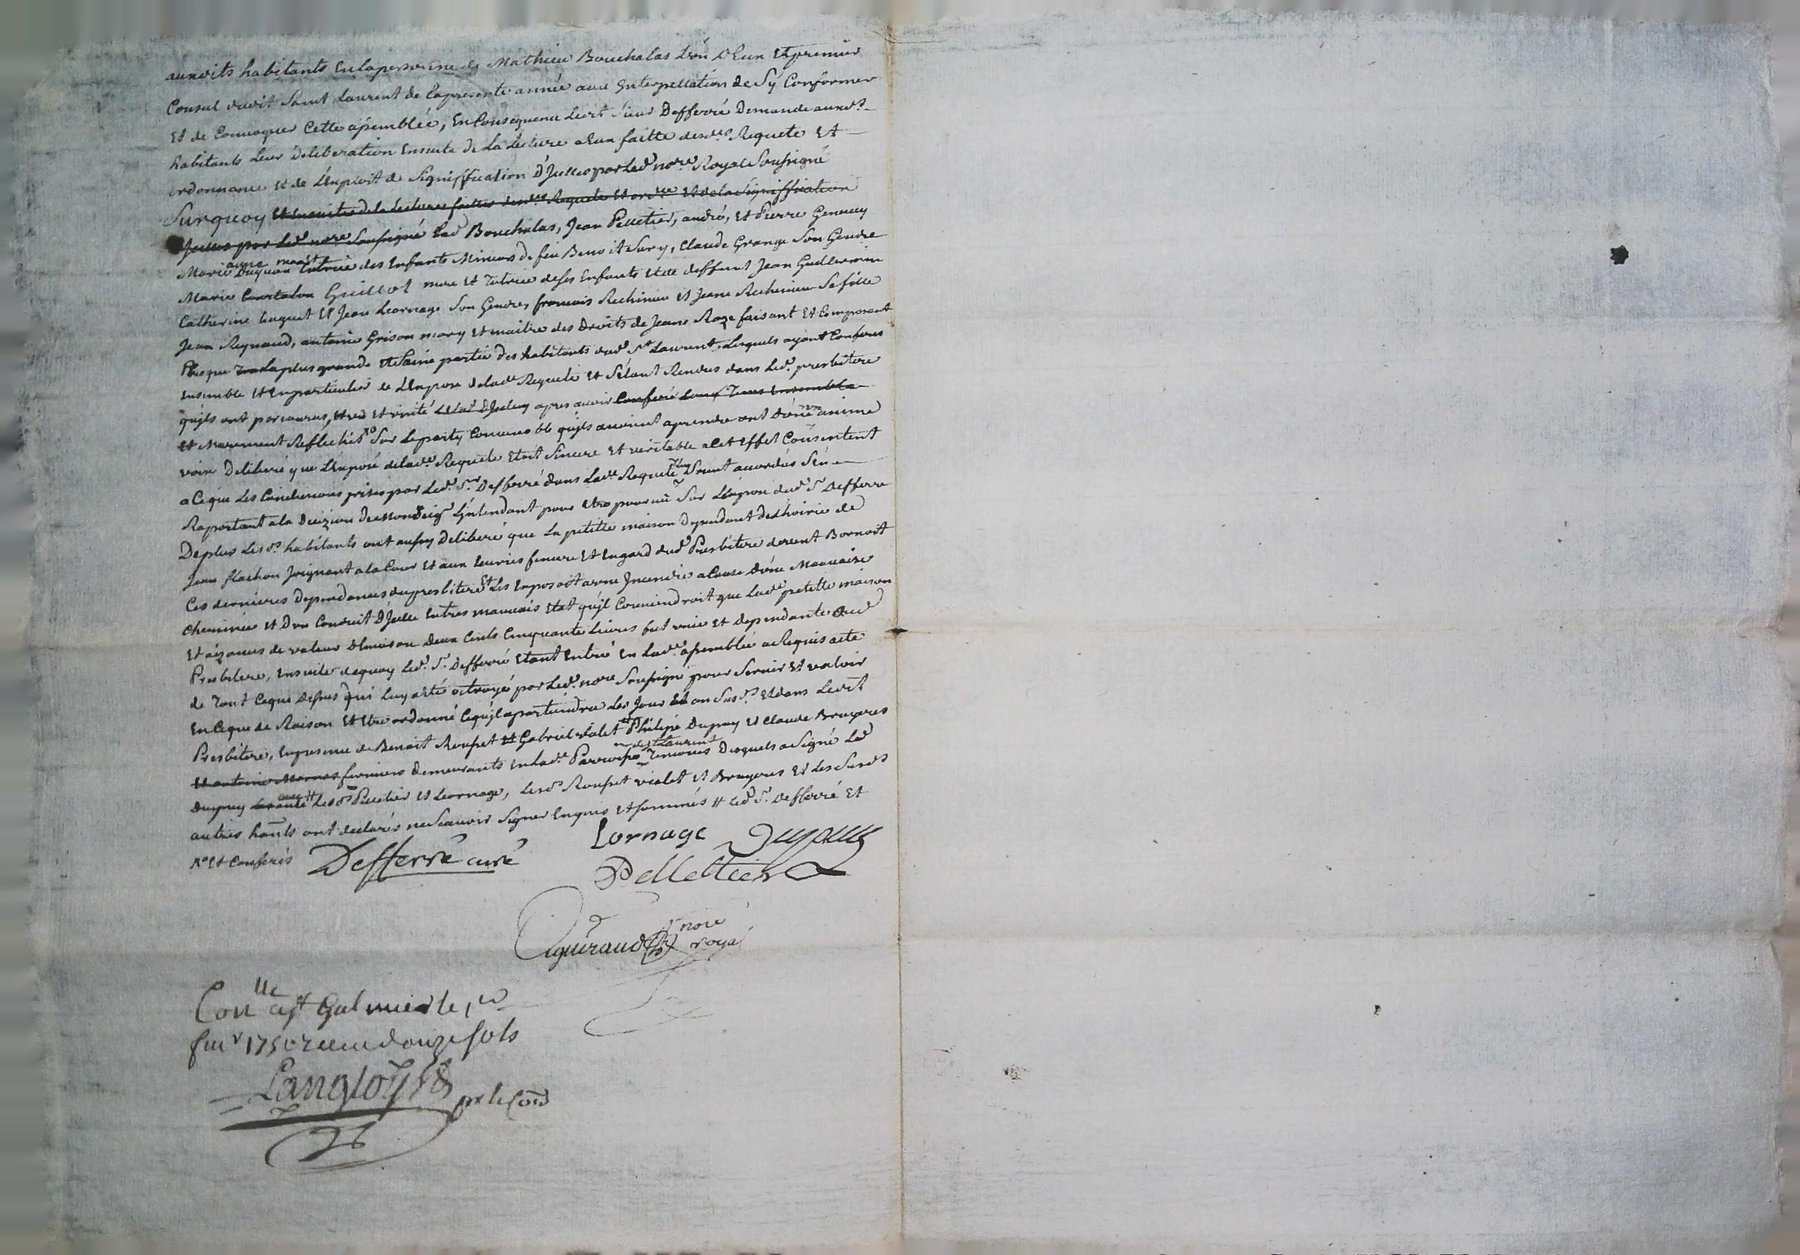 auxdits habitants en la personne de Mathieu Bouchalas L'un D'Eux et premier
Consul dudit Saint Laurent de la presente année aux Interpellation de Sy Conformer
Et de Convoquer Cette assemblée, En Consequence ledit Sieur Defferré Demande auxd.
habitants Leur Deliberation Ensuite de La Lecture a Eux faitte desd. Requete Et
ordonnance et de L'exploit de Signiffication D'Jcelles par Led. nore. Royal Soussigné
Surquoy Et Ensuitte de la Lecture faitte desd. Requete et ord.ce Et de la Signiffication
Jcelles par Led. nore Soussigné Led Bouchalas, Jean Pelletier, andré, Et Pierre
Marie Duguon tutrice des Enfants Mineurs de feu Benoit Sury, Claude Grange Son Gendre
Marie Guillot mere et Tutrice de ses Enfants et de deffunt Jean Guillermin
Catherine et Jean Lornage Son Gendre, francois Rechinieu et Jeane Rechinieu Sa fille
Jean Reynaud, antoine Grison mary Et maitre des Droits de Jeane Roze faisant Et Composant
Presque La plus grande Et Saine partie des habitants dud. St Laurent, Lesquels ayant Conferés
Ensemble et En particulier de L'Exposé de lad. Requete et S'Etant Rendus dans Led. presbitere
qu'jls ont parcourus, et vû et visité L'etat D'Jceluy apres avoir Conferé Long Tems Ensemble
et Murement Reflechis Sur Le party Convenable qu'jls avoient a prendre ont D'une unanime
voix Deliberé que L'Exposé de lad. Requete Etoit Sincere et veritable a Cet Effet Consentent
a Ce que Les Conclusions prises par Led. Sr. Defferré dans Lad. Requete Luy Soient accordées S'en
Raportant a la Decizion de Monseigr. L'jntendant pour Etre pourvû Sur L'Exposé dud. Sr. Defferré
De plus Lesd. habitants ont aussy Deliberé que La petitte maison Dependant de L'hoirie de
Jean flachon Joignant a la Cour et aux Ecuries feniere Et Engard dud. Presbitere
Ces dernieres Dependances du presbitere Et Les Exposoit a une Jncendie a Cause D'une Mauvaise
Cheminée et D'un Conduit D'Jcelle En tres mauvais Etat qu'jl Conviendroit que Lad. petitte maison
Et aizances de valeur D'Environ deux Cents Cinquante Livres fut unie et dependante dud
Presbitere, Ensuite dequoy Led. Sr. Defferré Etant Entré En Lad. assemblée a Requis acte
de Tout Ceque Dessus qui Luy a Eté octroyé par Led. nore Soussigné pour Servir Et valoir
En Ceque de Raison et Etre ordonné Cequ'jl apartiendra Les Jour Et an Sus.ds Et dans Ledit
Presbitere, En presence de Benoit Roupet Et Gabriel violet Et Philipe Dupuy Et Claude Bruyeres
Et antoine fermiers Demeurants En Lad. Parroisse de St Laurent Temoins Desquels a Signé Led
Dupuy avec Lesd. Pelletier et Lornage, Lesd. Roupet violet et Bruyeres et Les Susd.
autres hants ont declarés ne Scavoir Signer Enquis Et Sommés Led. Sr. Defferré Et
Nre Et Conferés Defferré curé Lornage Dupuy
Pelletier
nore
royal
Conlle a St Galmier le 1er
reçu douze sols
Langloys